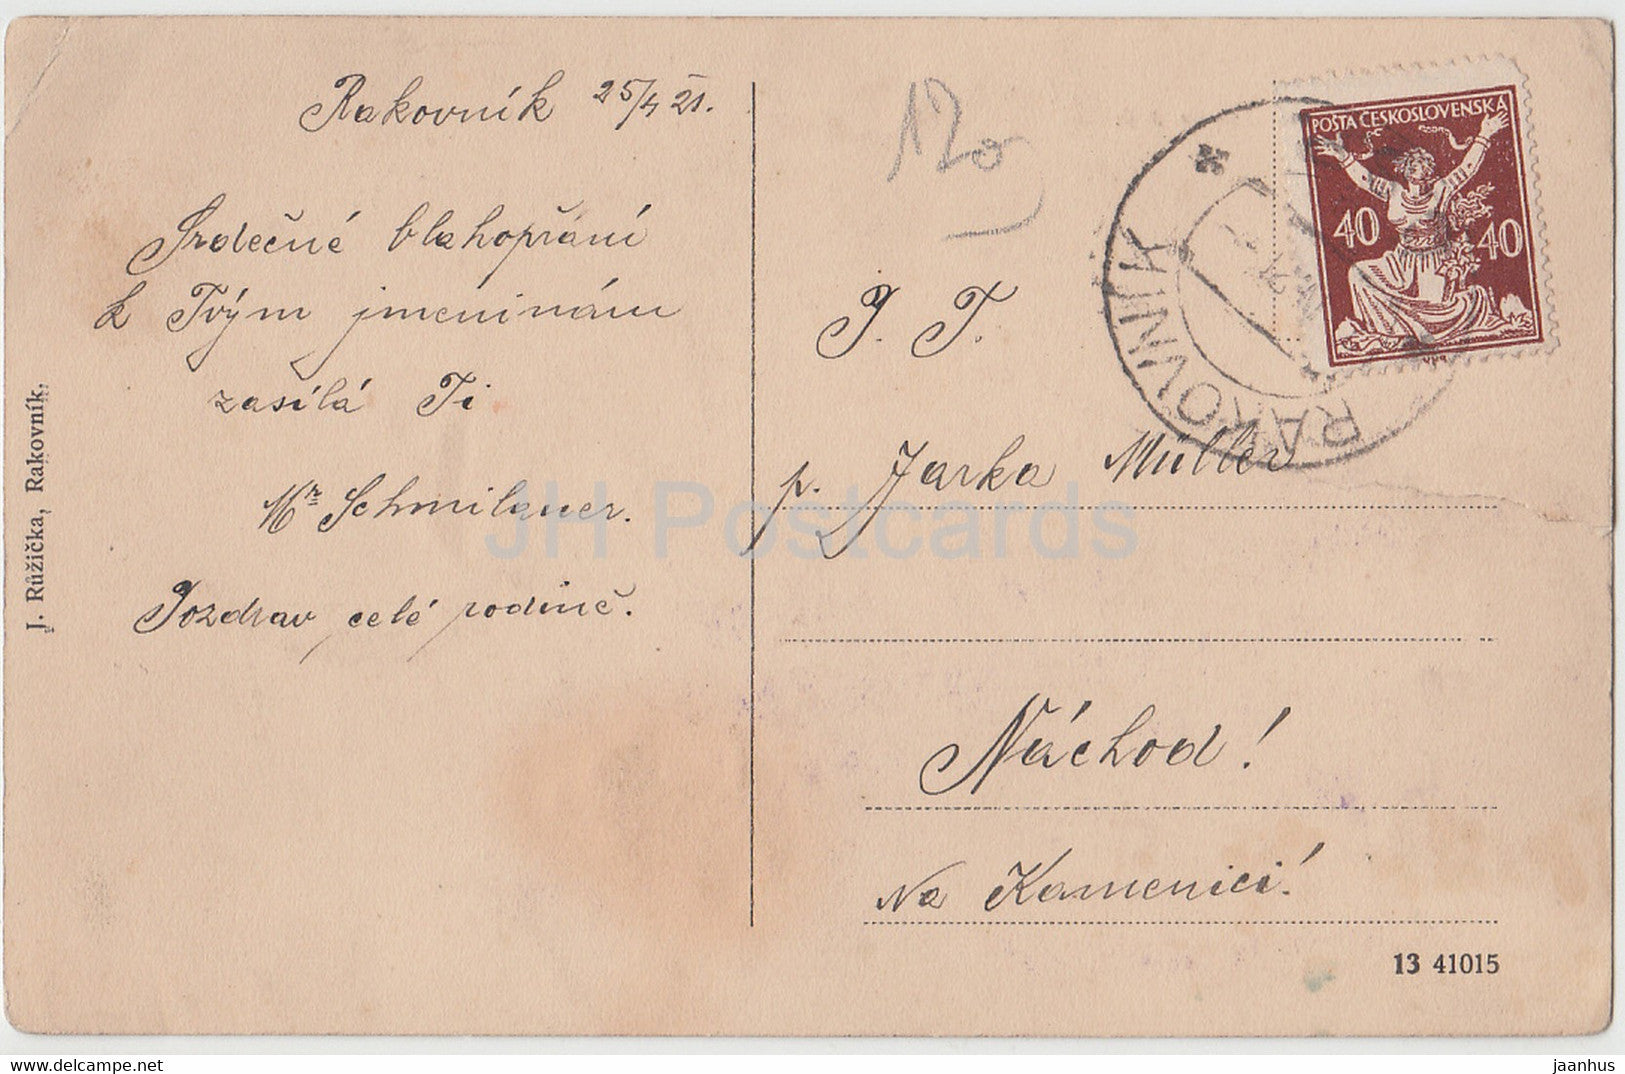 Rakovník 25/4 21.
Srdečné blahopřání
k Tvým jmeninám
zasílá Ti
Mr Schmilauer.
Pozdrav celé rodině.
J. Růžička, Rakovník.
120
POŠTA ČESKOSLOVENSKÁ
40 40
RAKOVNÍK
P. T.
p. Jarka Müller
Náchod!
Na Kamenici!
13 41015
JH Postcards
www.delcampe.net
jaanhus